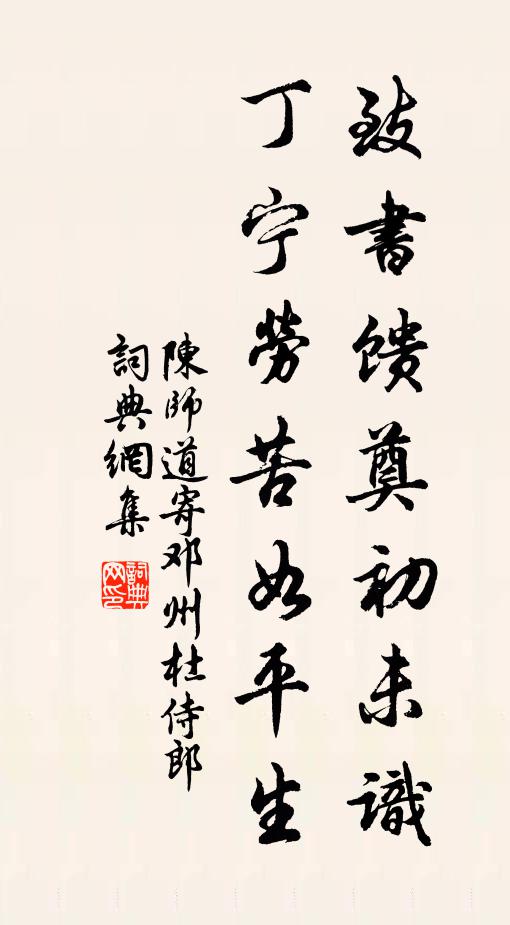 致書馈奠初未識
丁宁勞苦如平生
陳師道寄邓州杜侍郎
詞典網集
詞典网印